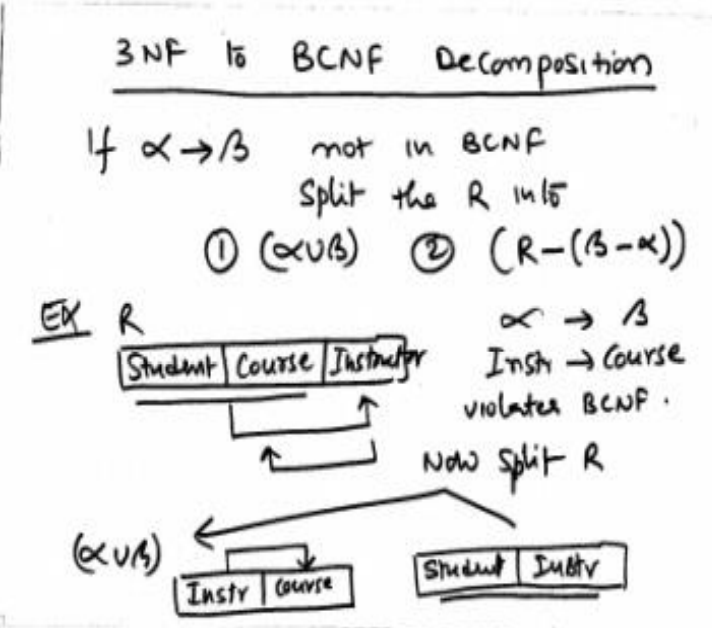 3 NF to BCNF Decomposition
If α → β not in BCNF
Split the R into
① (α∪β) ② (R-(β-α))
EX R
α → β
Student | Course | Instructor
Instr → Course
violates BCNF.
Now Split R
(α∪β)
Instr | Course
Student | Instr